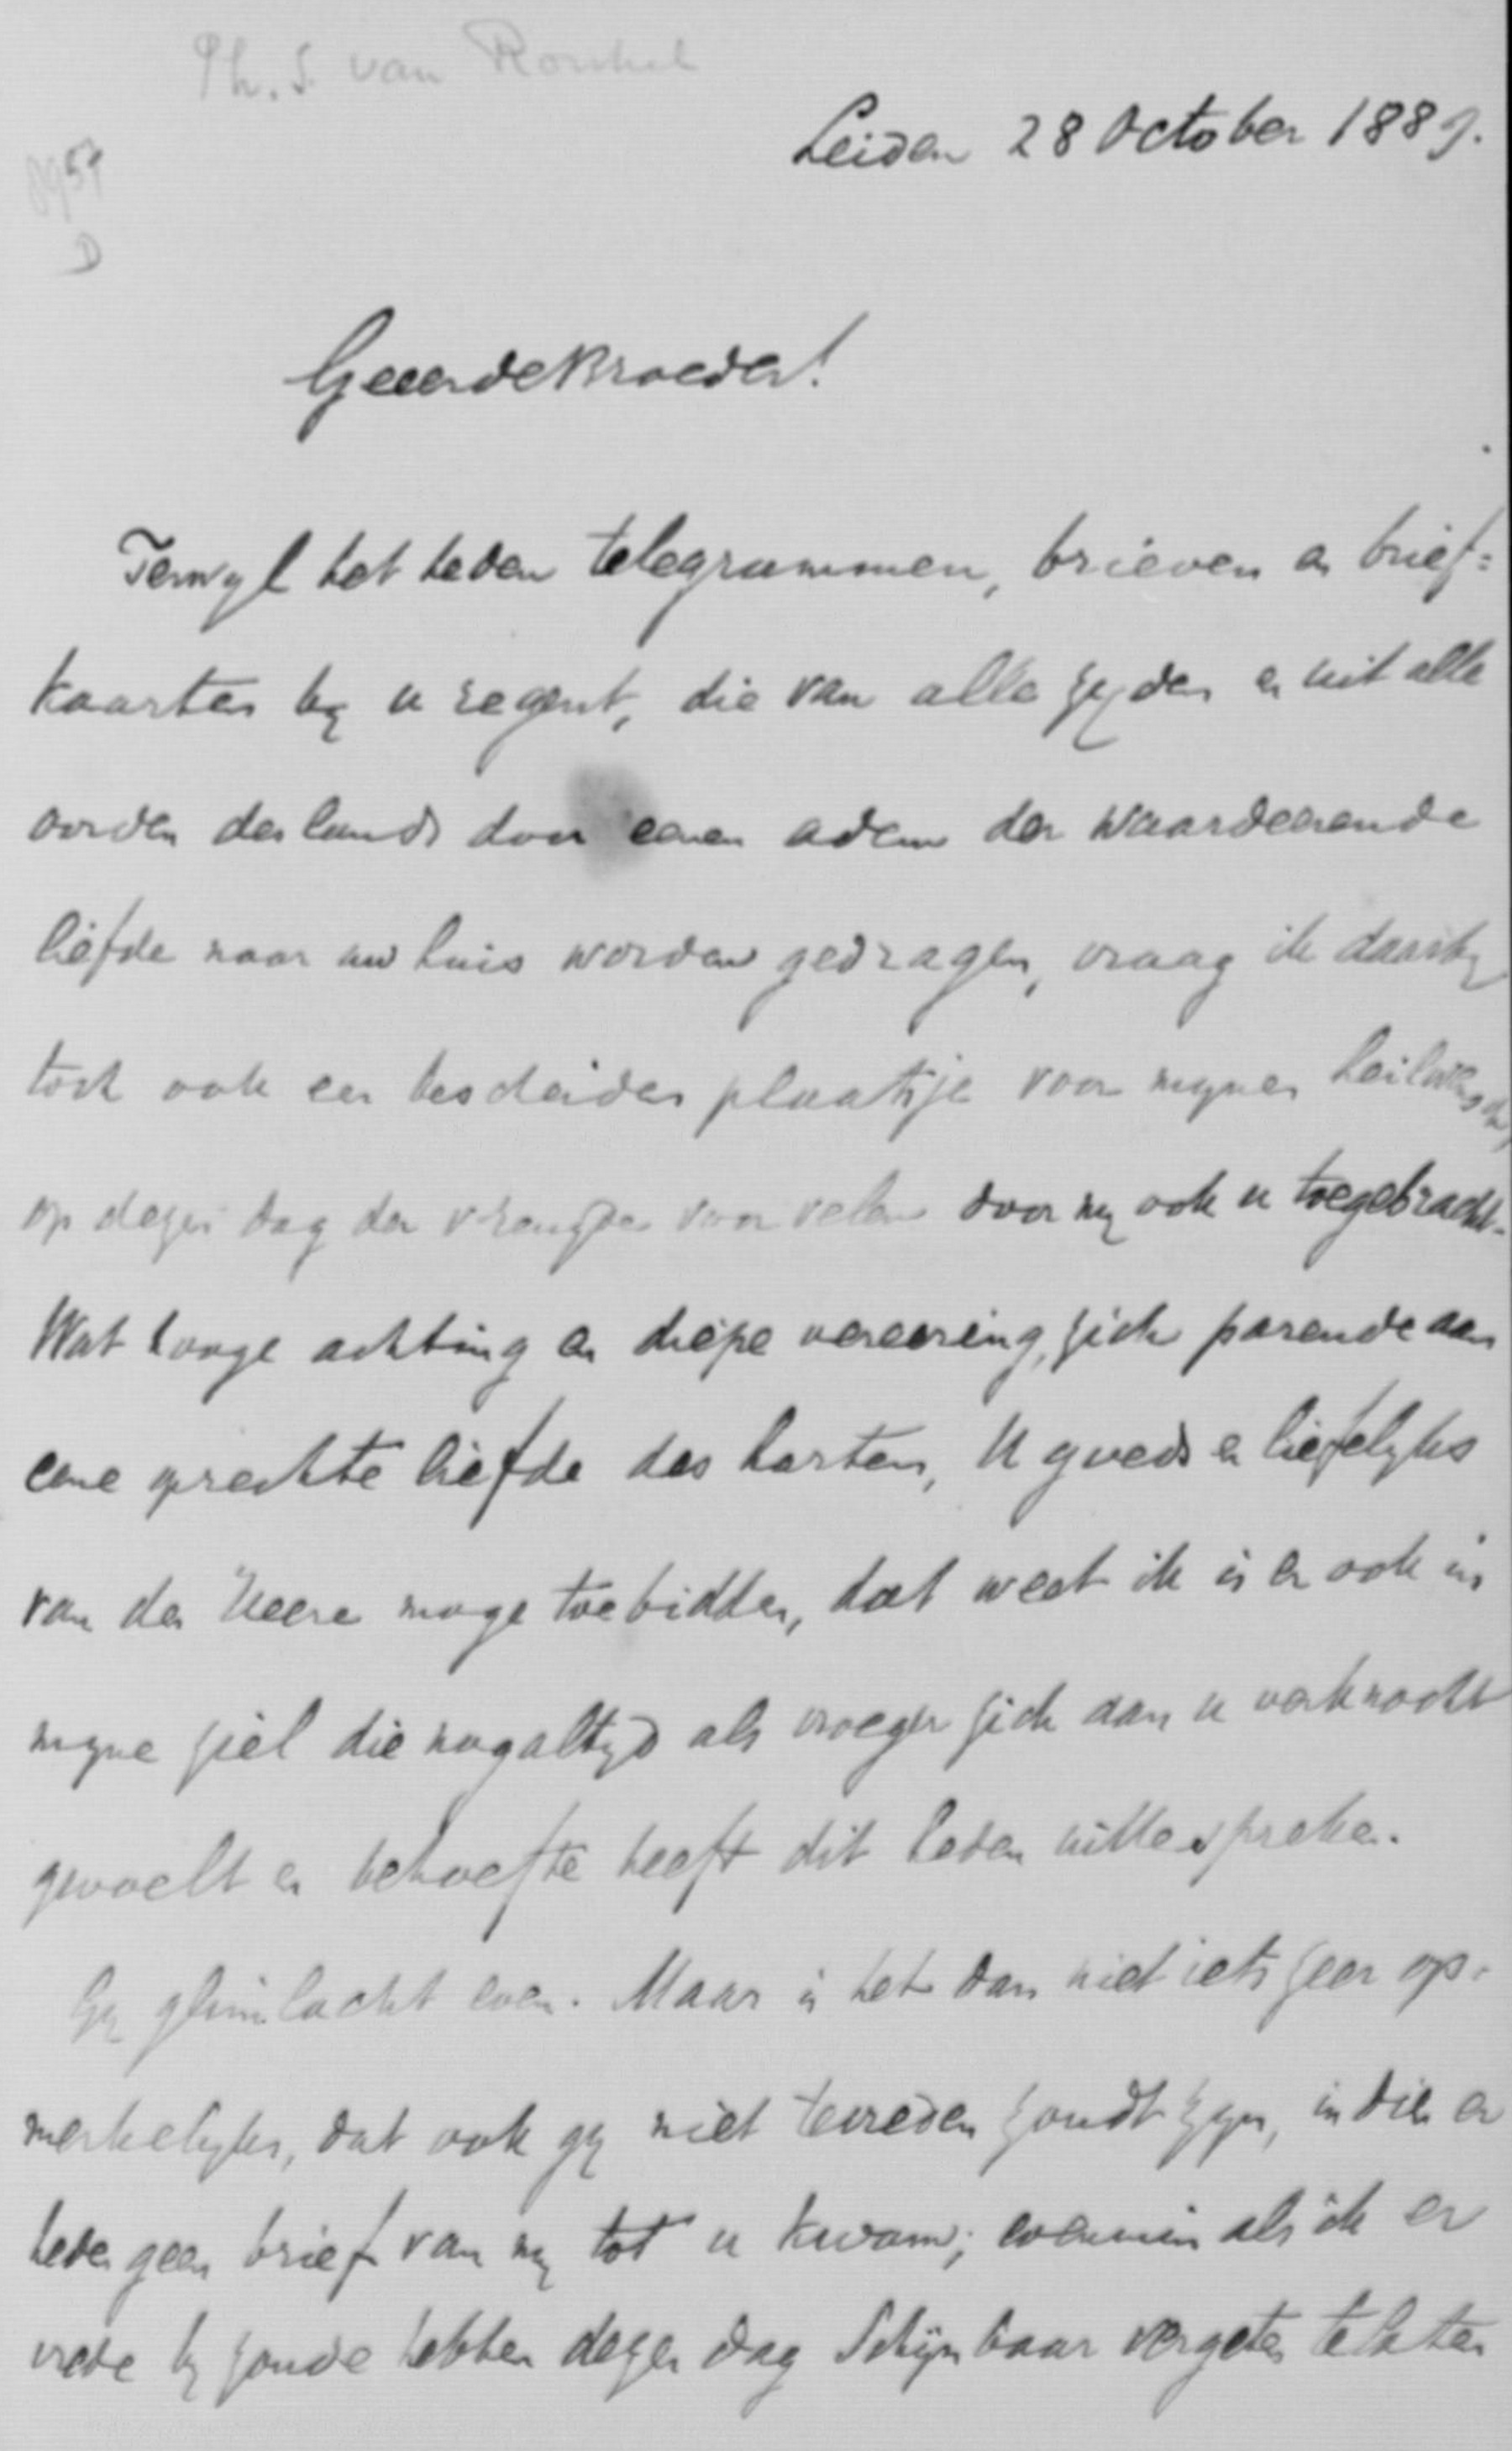 Ph. S. van Ronkel
Leiden 28 October 1889.
D
Geeerde Broeder!
Terwyl het heden telegrammen, brieven en brief=
kaarten by u regent, die van alle zyden en uit alle
oorden des lands door eenen adem der waardeerende
liefde naar uw huis worden gedragen, vraag ik daarby
toch ook een bescheiden plaatsje voor mynen heilwensch,
op dezen dag der vreugde voor velen door my ook u toegebracht.
Wat hooge achting en diepe vereering, zich parende aan
eene oprechte liefde des harten, U goeds en liefelyks
van den Heere moge toebidden, dat weet ik is er ook in
myne ziel die nog altyd als vroeger zich aan u verknocht
gevoelt en behoefte heeft dit heden uit te spreken.
Gy glimlacht even. Maar is het dan niet iets zeer op-
merkelyks, dat ook gy niet tevreden zoudt zyn, indien er
heden geen brief van my tot u kwam; evenmin als ik er
vrede by zoude hebben dezen dag schijnbaar vergeten te laten